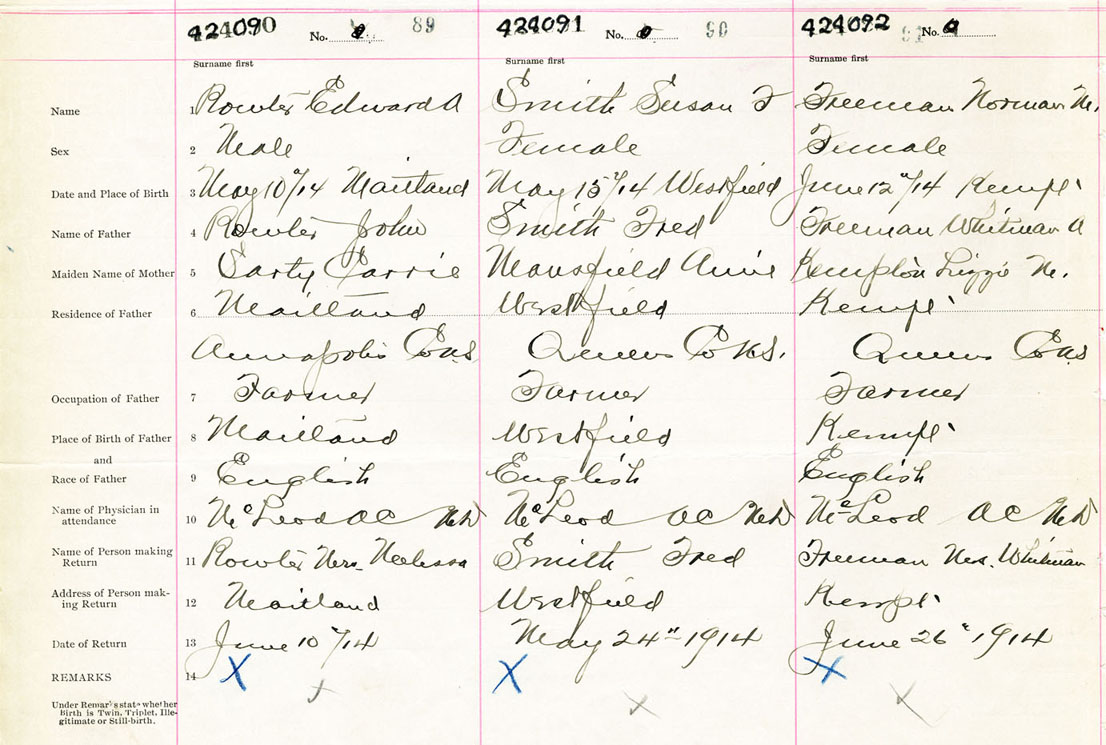 424090 No. 89
424091 No. 90
424092 91 No.
Surname first
Surname first
Surname first
Name 1 Rowter Edward A Smith Susan F Freeman Norman M.
Sex 2 Male Female Female
Date and Place of Birth 3 May 10"/14 Maitland May 15"/14 Westfield June 12"/14 Kempt
Name of Father 4 Rowter John Smith Fred Freeman Whitman A
Maiden Name of Mother 5 Sarty Carrie Mansfield Annie Kempton Lizzie M.
Residence of Father 6 Maitland Westfield Kempt
Annapolis Co NS Queens Co NS. Queens Co NS
Occupation of Father 7 Farmer Farmer Farmer
Place of Birth of Father 8 Maitland Westfield Kempt
and
Race of Father 9 English English English
Name of Physician in
attendance 10 McLeod AC MD McLeod AC MD McLeod AC MD
Name of Person making
Return 11 Rowter Mrs. Melissa Smith Fred Freeman Mrs. Whitman
Address of Person mak-
ing Return 12 Maitland Westfield Kempt
Date of Return 13 June 10"/14 May 24" 1914 June 26" 1914
REMARKS 14 X X X
Under Remarks state whether
Birth is Twin, Triplet, Ille-
gitimate or Still-birth.